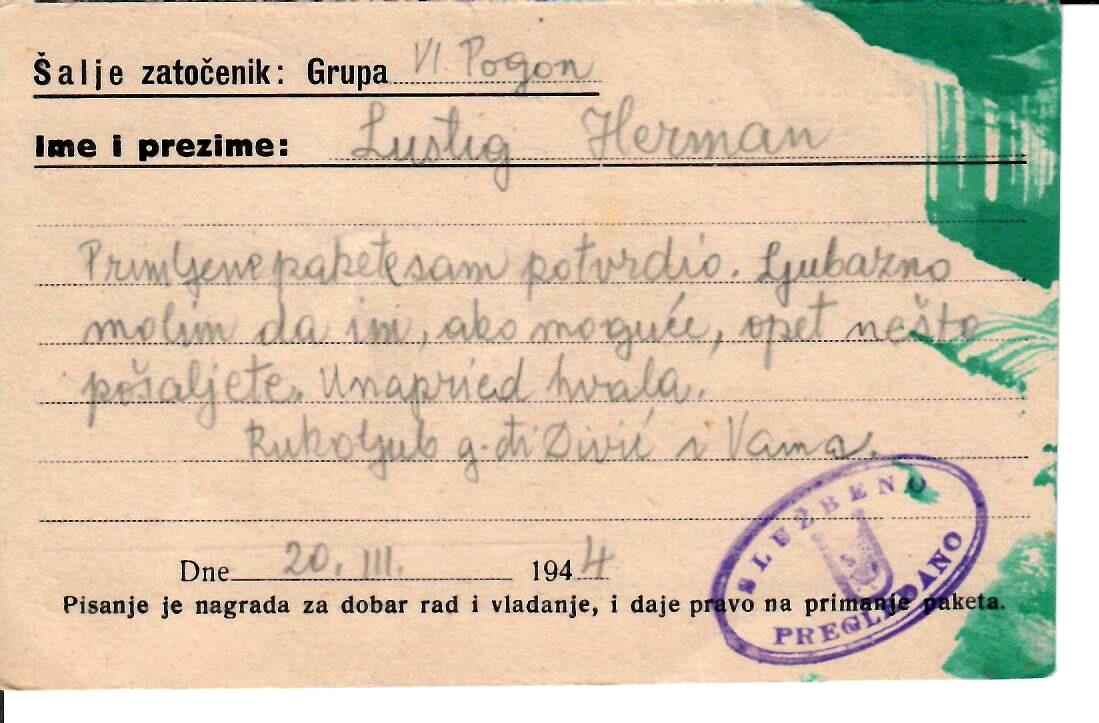 Šalje zatočenik: Grupa VI Pogon
Ime i prezime: Lustig Herman
Primljene pakete sam potvrdio. Ljubazno
molim da mi, ako moguće, opet nešto
pošaljete. Unapried hvala.
Rukoljub g-đi Divić i Vama.
Dne 20. III. 1944
Pisanje je nagrada za dobar rad i vladanje, i daje pravo na primanje paketa.
SLUŽBENO
PREGLEDANO